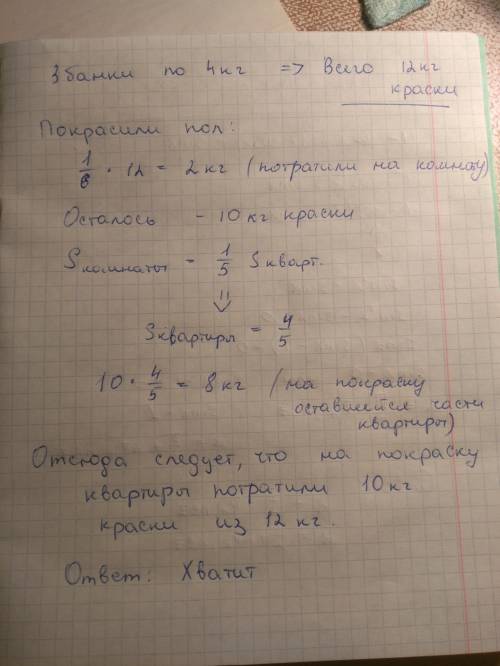 3 банки по 4кг => Всего 12кг
краски
Покрасили пол:
1/6 · 12 = 2 кг (потратили на комнату)
Осталось - 10 кг краски
Sкомнаты = 1/5 Sкварт.
⇓
Sквартиры = 4/5
10 · 4/5 = 8кг (на покраску
оставшейся части
квартиры)
Отсюда следует, что на покраску
квартиры потратили 10кг
краски из 12 кг.
Ответ: Хватит